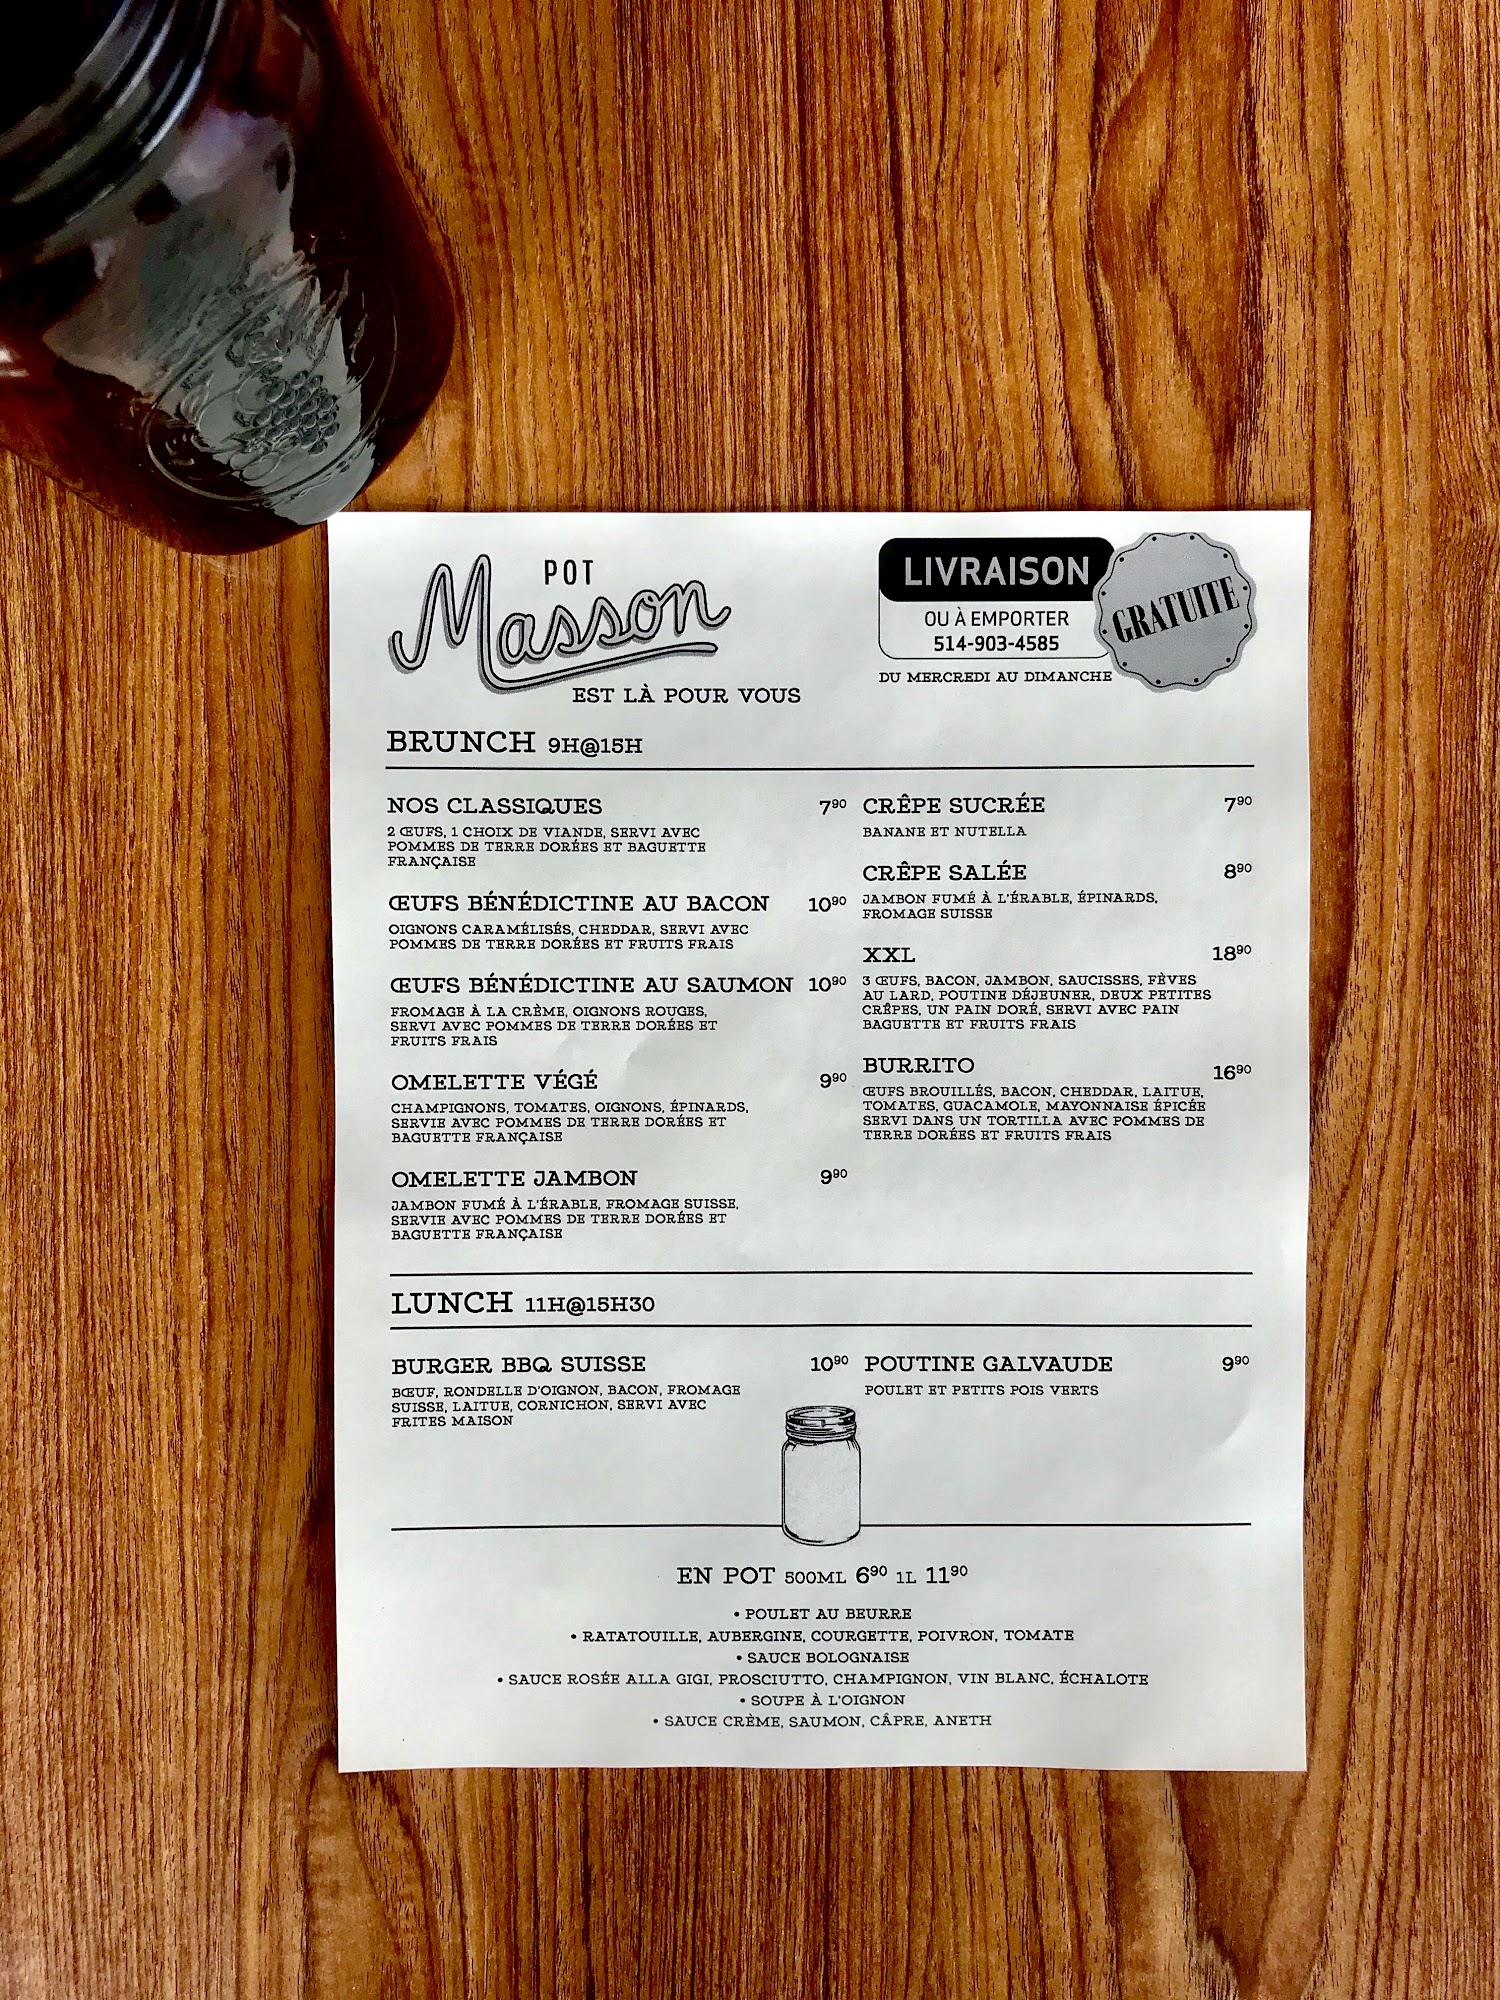 POT
Masson
EST LÀ POUR VOUS
LIVRAISON
GRATUITE
OU À EMPORTER
514-903-4585
DU MERCREDI AU DIMANCHE
BRUNCH 9H@15H
NOS CLASSIQUES 7⁹⁰
2 ŒUFS, 1 CHOIX DE VIANDE, SERVI AVEC
POMMES DE TERRE DORÉES ET BAGUETTE
FRANÇAISE
ŒUFS BÉNÉDICTINE AU BACON 10⁹⁰
OIGNONS CARAMÉLISÉS, CHEDDAR, SERVI AVEC
POMMES DE TERRE DORÉES ET FRUITS FRAIS
ŒUFS BÉNÉDICTINE AU SAUMON 10⁹⁰
FROMAGE À LA CRÈME, OIGNONS ROUGES,
SERVI AVEC POMMES DE TERRE DORÉES ET
FRUITS FRAIS
OMELETTE VÉGÉ 9⁹⁰
CHAMPIGNONS, TOMATES, OIGNONS, ÉPINARDS,
SERVIE AVEC POMMES DE TERRE DORÉES ET
BAGUETTE FRANÇAISE
OMELETTE JAMBON 9⁹⁰
JAMBON FUMÉ À L'ÉRABLE, FROMAGE SUISSE,
SERVIE AVEC POMMES DE TERRE DORÉES ET
BAGUETTE FRANÇAISE
CRÊPE SUCRÉE 7⁹⁰
BANANE ET NUTELLA
CRÊPE SALÉE 8⁹⁰
JAMBON FUMÉ À L'ÉRABLE, ÉPINARDS,
FROMAGE SUISSE
XXL 18⁹⁰
3 ŒUFS, BACON, JAMBON, SAUCISSES, FÈVES
AU LARD, POUTINE DÉJEUNER, DEUX PETITES
CRÊPES, UN PAIN DORÉ, SERVI AVEC PAIN
BAGUETTE ET FRUITS FRAIS
BURRITO 16⁹⁰
ŒUFS BROUILLÉS, BACON, CHEDDAR, LAITUE,
TOMATES, GUACAMOLE, MAYONNAISE ÉPICÉE
SERVI DANS UN TORTILLA AVEC POMMES DE
TERRE DORÉES ET FRUITS FRAIS
LUNCH 11H@15H30
BURGER BBQ SUISSE 10⁹⁰
BŒUF, RONDELLE D'OIGNON, BACON, FROMAGE
SUISSE, LAITUE, CORNICHON, SERVI AVEC
FRITES MAISON
POUTINE GALVAUDE 9⁹⁰
POULET ET PETITS POIS VERTS
EN POT 500ML 6⁹⁰ 1L 11⁹⁰
• POULET AU BEURRE
• RATATOUILLE, AUBERGINE, COURGETTE, POIVRON, TOMATE
• SAUCE BOLOGNAISE
• SAUCE ROSÉE ALLA GIGI, PROSCIUTTO, CHAMPIGNON, VIN BLANC, ÉCHALOTE
• SOUPE À L'OIGNON
• SAUCE CRÈME, SAUMON, CÂPRE, ANETH